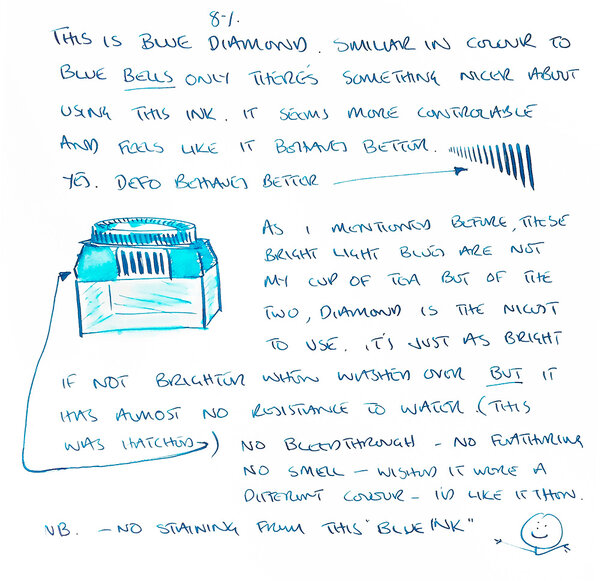 8-1.
THIS IS BLUE DIAMOND. SIMILAR IN COLOUR TO
BLUE BELLS ONLY THERE'S SOMETHING NICER ABOUT
USING THIS INK. IT SEEMS MORE CONTROLABLE
AND FEELS LIKE IT BEHAVES BETTER.
YES. DEFO BEHAVES BETTER
AS I MENTIONED BEFORE, THESE
BRIGHT LIGHT BLUES ARE NOT
MY CUP OF TEA BUT OF THE
TWO, DIAMOND IS THE NICEST
TO USE. IT'S JUST AS BRIGHT
IF NOT BRIGHTER WHEN WASHED OVER BUT IT
HAS ALMOST NO RESISTANCE TO WATER (THIS
WAS HATCHED) NO BLEEDTHROUGH - NO FEATHERING
NO SMELL - WISHED IT WERE A
DIFFERENT COLOUR - I'D LIKE IT THEN.
NB. - NO STAINING FROM THIS "BLUE INK"